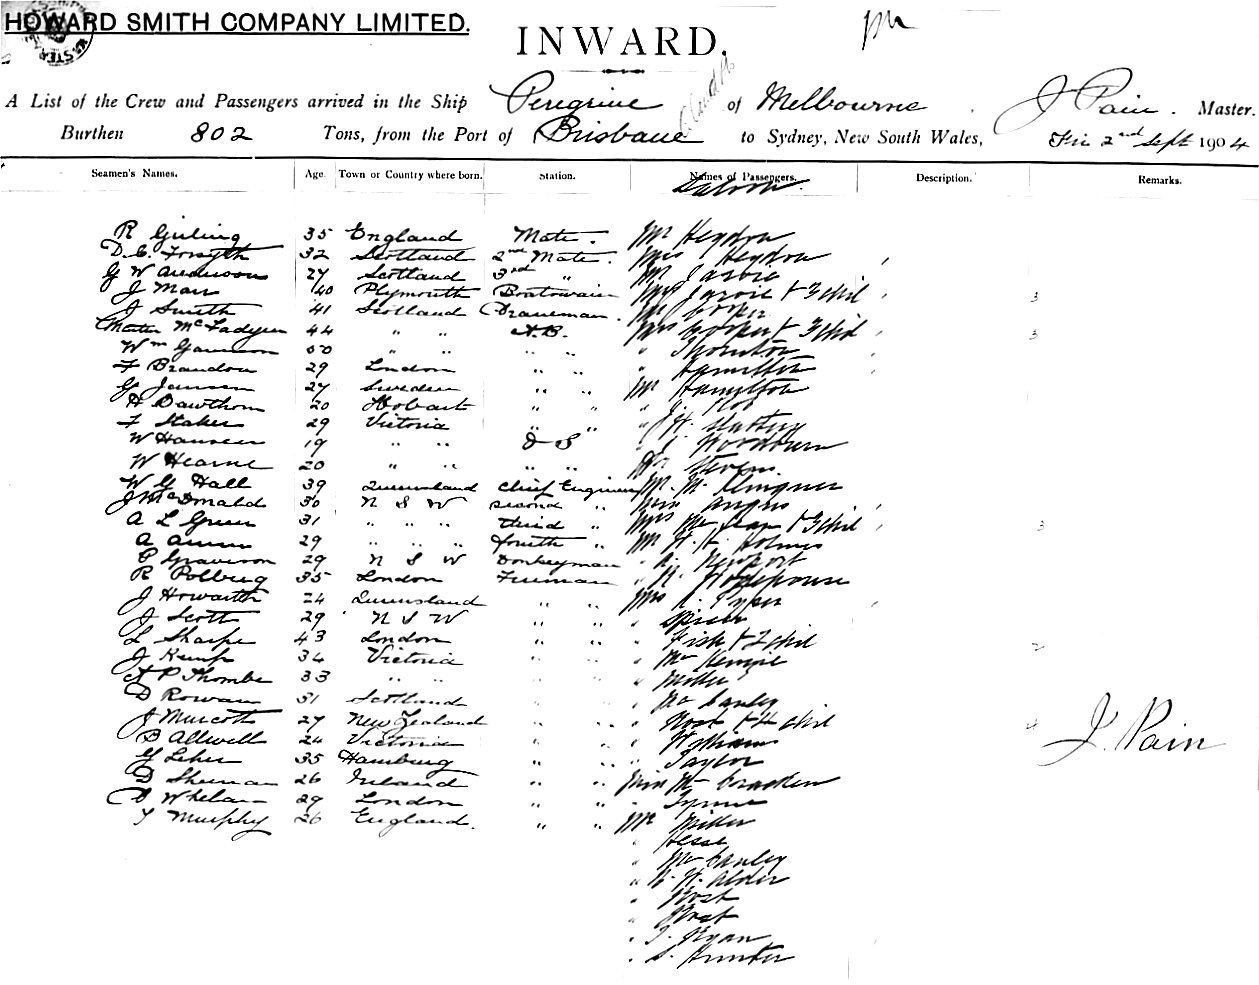 HOWARD SMITH COMPANY LIMITED.
INWARD.
A List of the Crew and Passengers arrived in the Ship Peregrine of Melbourne J Pain. Master.
Burthen 802 Tons, from the Port of Brisbane to Sydney, New South Wales, Fri 2nd Sept 1904
Seamen's Names. Age Town or Country where born. Station. Names of Passengers. Description. Remarks.
Saloon.
R Girling 35 England Mate. Mr Heydon
D. C. Forsyth 32 Scotland 2nd Mate. Mrs Heydon
G W Anderson 27 Scotland 3rd " Mr Jarvie
J Marr 40 Plymouth Boatswain Mrs Jarvie & 3 Chil 3
J Smith 41 Scotland Mr Cooper
McFadyen 44 " " A.B. Mrs Cooper & 3 Chil 3
Wm 50 " " " " " Thornton
F Brandon 29 London " " " Hamilton
G Jansen 27 Sweden " " Mr Hamilton
H Dawthorn 20 Hobart " " "
F Staker 29 Victoria " " "
W Hansen 19 " " O S " Woodburn
W Hearne 20 " " " " Stevens
W G Hall 39 Queensland Chief Engineer
J McDonald 30 N S W second " Miss Angus
A L Green 31 " " " third " Mrs McLean & 3 Chil 3
A 29 " " " fourth " Mr H. H. Holmes
29 N S W Donkeyman " Newport
R Polberg 35 London Fireman " Wodehouse
J Howarth 24 Queensland " " Mrs
J Scott 29 N S W " " " Spicer
L Sharpe 43 London " " " Fish & 2 Chil 2
J Kemp 34 Victoria " " " McKenzie
A P Thombe 33 " " " " " Miller
D Rowan 31 Scotland " " " McCauley
J Murcott 27 New Zealand " " " Post & 4 Chil 4
B Allwell 24 Victoria " " " Williams
G Leher 35 Hamburg " " " Taylor
D Sheenan 26 Ireland " " Miss McCracken
D Whelan 29 London " " "
T Murphy 26 England. " " Mr Miller
" Hesse
" McCauley
" Alder
" Post
" Post
" T. Ryan
" S. Hunter
J. Pain